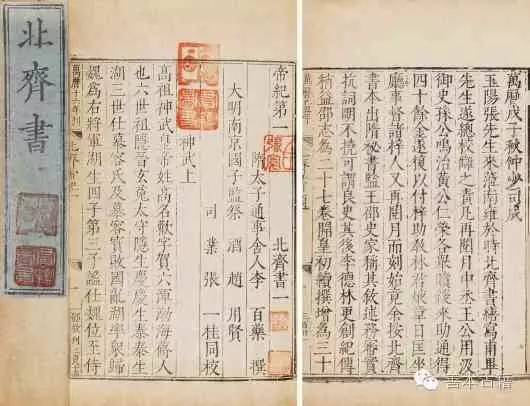 北齊書 一
萬曆戊子秋仲少司成
玉陽張先生來蒞南雍於時北齊書梓寫甫畢
先生遂總校讎之責凡再閱月中丞王公用汲
御史孫公鳴治黃公仁榮各舉贖鍰來助通得
四十餘金遂以付梓助教林君章日匡坐
廳事督諸梓人又再閱月而刻始竟余按北齊
書本出隋秘書監王邵史家稱其敘述務審實
抗詞明不撓可謂良史其後李德林更創紀傳
稍益邵志為二十七卷開皇初續撰增為三十
帝紀第一 北齊書一
隋太子通事舍人李百藥撰
大明南京國子監祭酒趙用賢
司業張一桂同校
神武上
高祖神武皇帝姓高名歡字賀六渾渤海蓨人
也六世祖隱晉玄菟太守隱生慶慶生泰泰生
湖三世仕慕容氏及慕容寶敗國亂湖率衆歸
魏爲右將軍湖生四子第三子謐仕魏位至侍
萬曆十六年刊
善本古籍